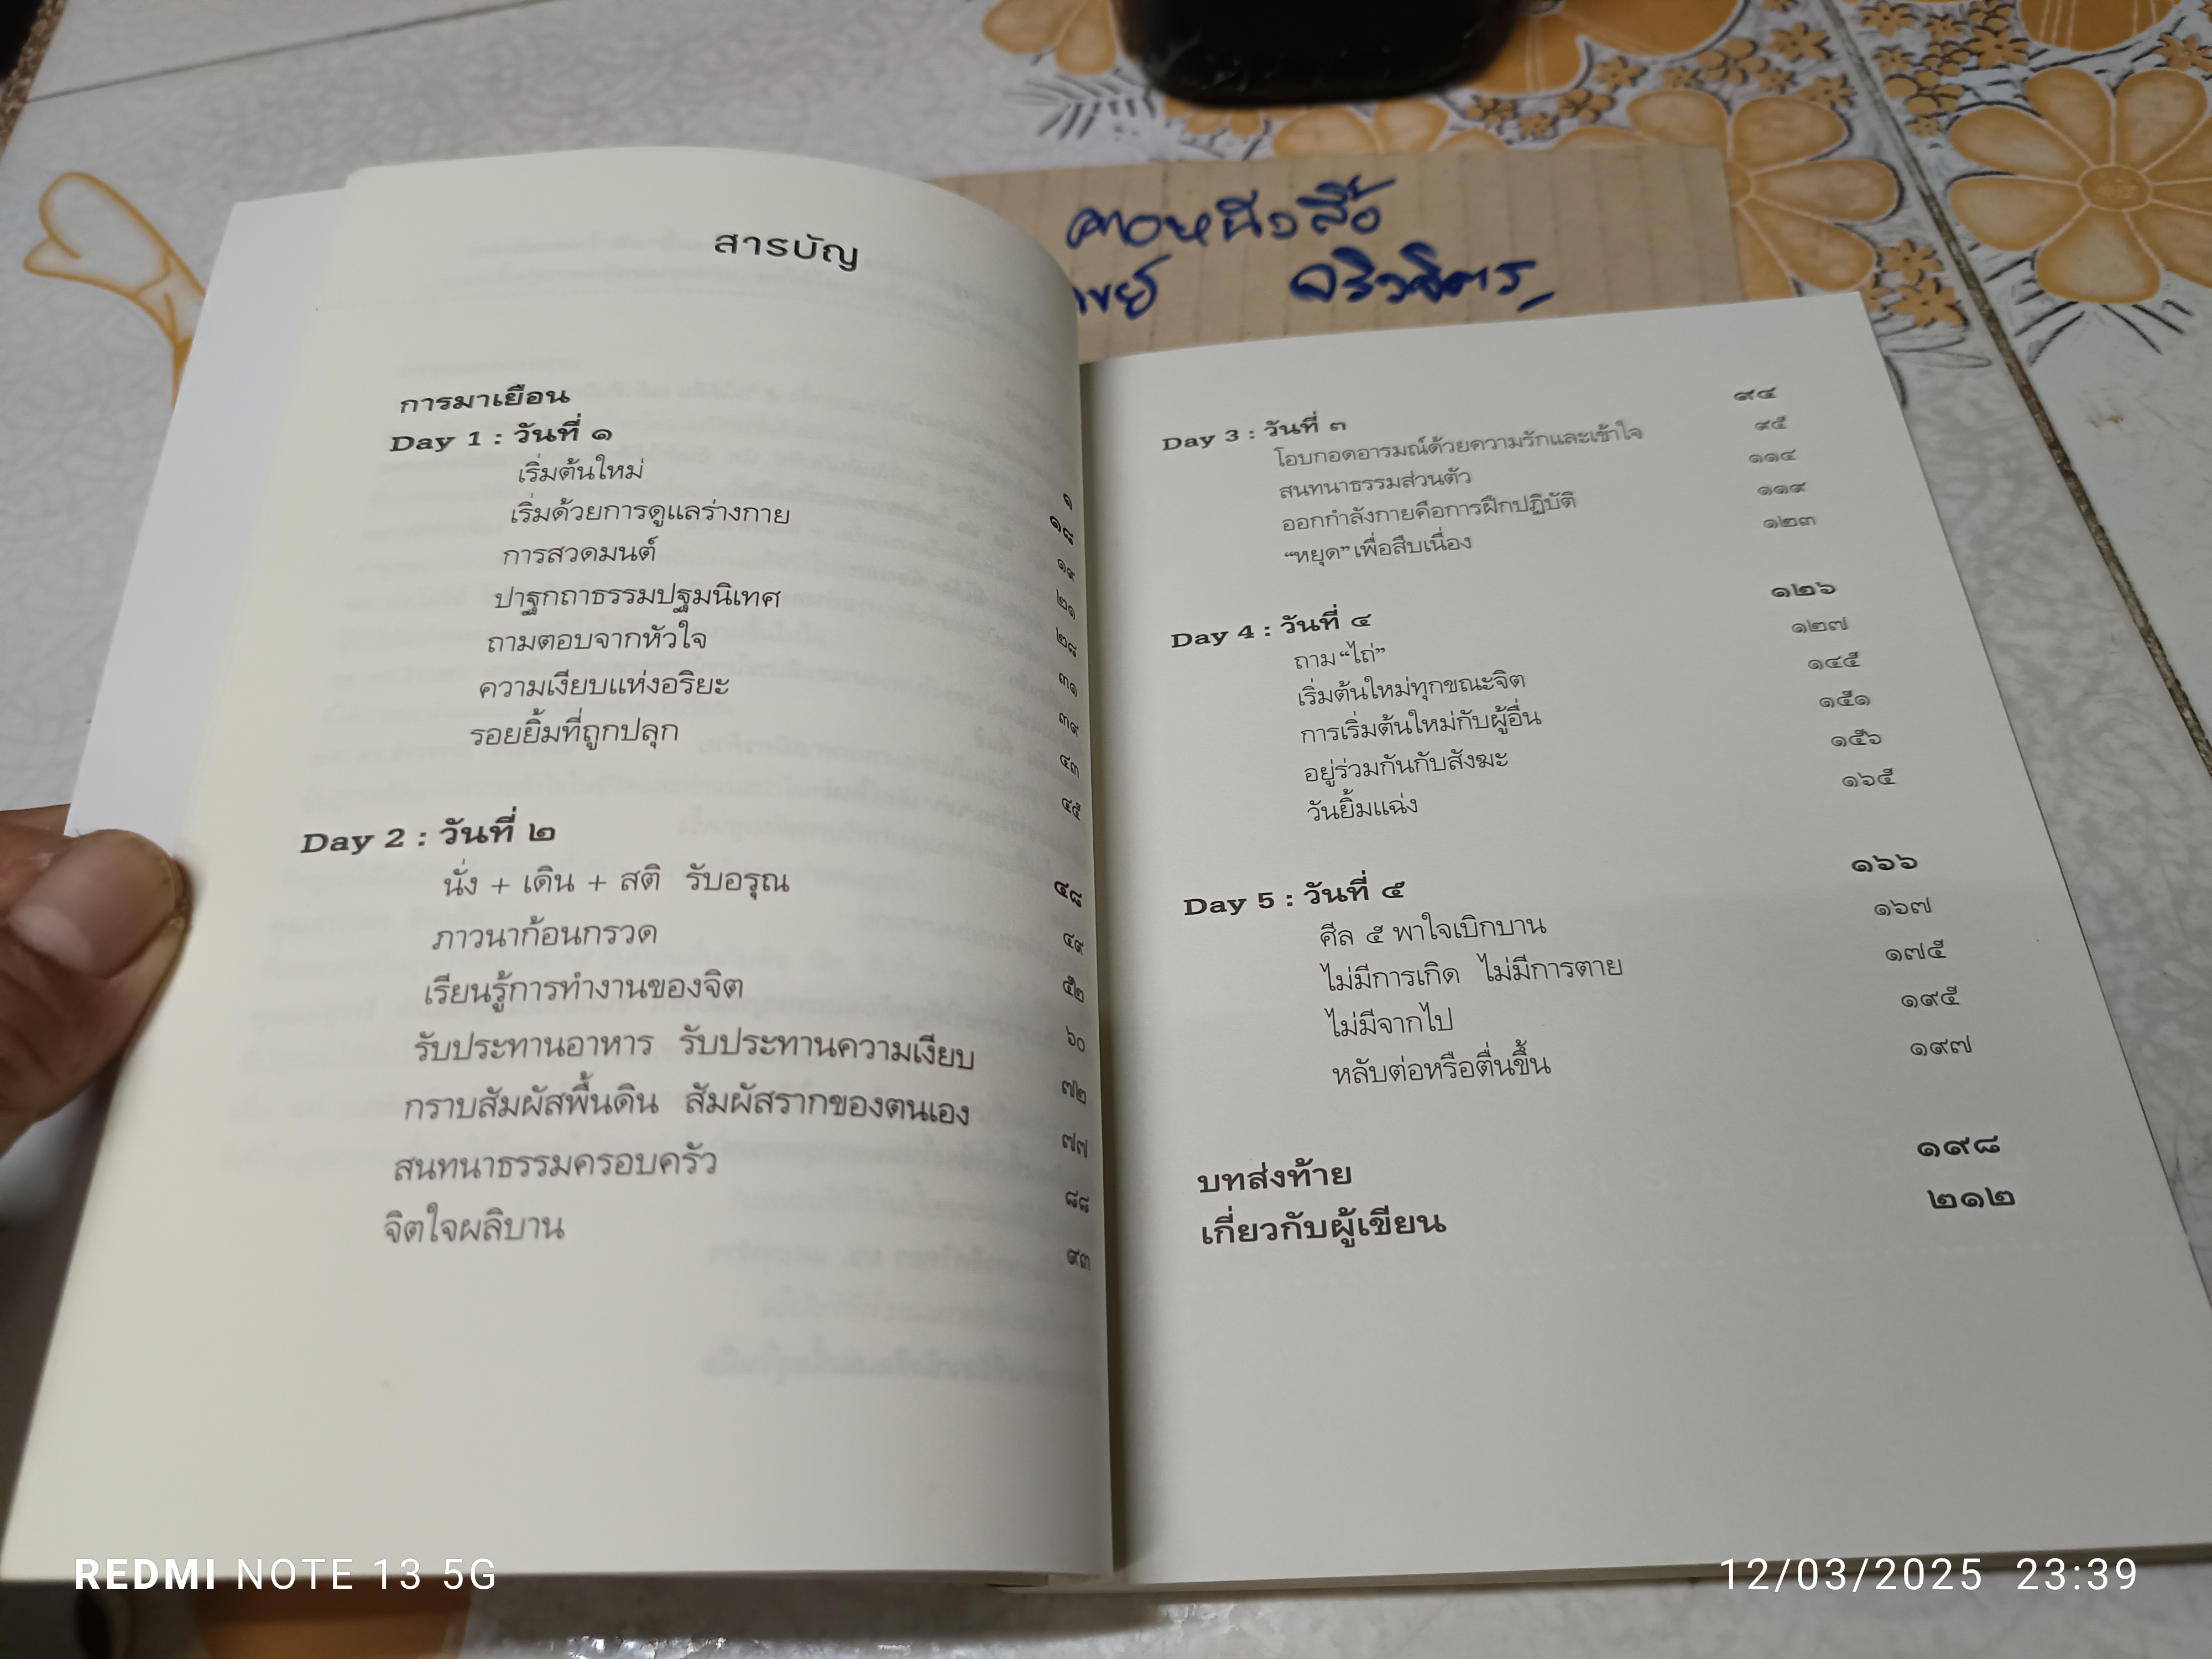 สารบัญ
การมาเยือน ๑
Day 1 : วันที่ ๑ ๑๘
เริ่มต้นใหม่ ๑๙
เริ่มด้วยการดูแลร่างกาย ๒๑
การสวดมนต์ ๒๘
ปาฐกถาธรรมปฐมนิเทศ ๓๑
ถามตอบจากหัวใจ ๓๙
ความเงียบแห่งอริยะ ๔๓
รอยยิ้มที่ถูกปลุก ๔๕
Day 2 : วันที่ ๒ ๔๘
นั่ง + เดิน + สติ รับอรุณ ๔๙
ภาวนาก้อนกรวด ๕๒
เรียนรู้การทำงานของจิต ๖๐
รับประทานอาหาร รับประทานความเงียบ ๗๒
กราบสัมผัสพื้นดิน สัมผัสรากของตนเอง ๗๗
สนทนาธรรมครอบครัว ๘๘
จิตใจผลิบาน ๙๓
Day 3 : วันที่ ๓ ๙๔
โอบกอดอารมณ์ด้วยความรักและเข้าใจ ๙๕
สนทนาธรรมส่วนตัว ๑๑๔
ออกกำลังกายคือการฝึกปฏิบัติ ๑๑๙
“หยุด” เพื่อสืบเนื่อง ๑๒๓
Day 4 : วันที่ ๔ ๑๒๖
ถาม “ไถ่” ๑๒๗
เริ่มต้นใหม่ทุกขณะจิต ๑๔๕
การเริ่มต้นใหม่กับผู้อื่น ๑๕๑
อยู่ร่วมกันกับสังฆะ ๑๕๖
วันยิ้มแฉ่ง ๑๖๕
Day 5 : วันที่ ๕ ๑๖๖
ศีล ๕ พาใจเบิกบาน ๑๖๗
ไม่มีการเกิด ไม่มีการตาย ๑๗๕
ไม่มีจากไป ๑๙๕
หลับต่อหรือตื่นขึ้น ๑๙๗
บทส่งท้าย ๑๙๘
เกี่ยวกับผู้เขียน ๒๑๒
REDMI NOTE 13 5G
12/03/2025 23:39